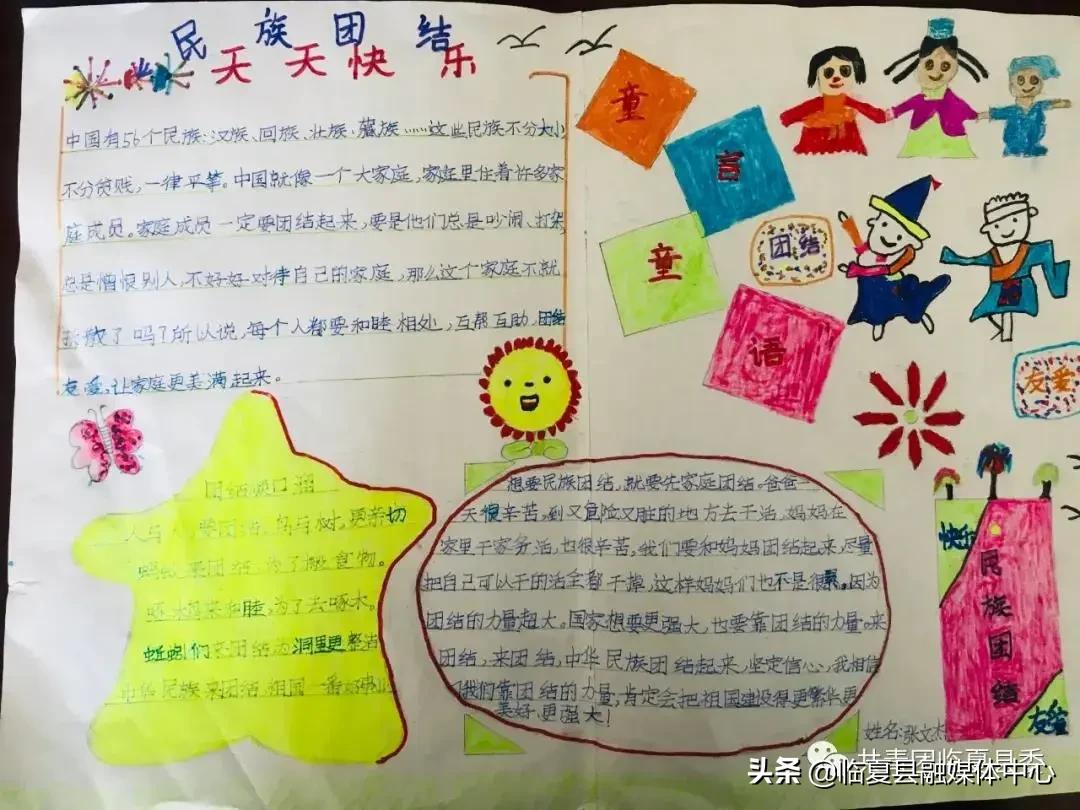 民族团结
天天快乐
中国有56个民族:汉族、回族、壮族、藏族……这些民族不分大小
不分贫贱,一律平等。中国就像一个大家庭,家庭里住着许多家
庭成员。家庭成员一定要团结起来,要是他们总是吵闹、打架
总是憎恨别人,不好好对待自己的家庭,那么这个家庭不就
散了吗?所以说,每个人都要和睦相处,互帮互助,团结
友爱,让家庭更美满起来。
童
言
童
语
团结
友爱
团结顺口溜
人与人,要团结,鸟与树,更亲切
来团结,为了搬食物。
啄木鸟来和睦,为了去啄木。
蚯蚓们来团结为洞里更整洁
中华民族来团结,祖国一番
想要民族团结,就要先家庭团结。爸爸一
天很辛苦,到又危险又脏的地方去干活,妈妈在
家里干家务活,也很辛苦。我们要和妈妈团结起来,尽量
把自己可以干的活全都干掉,这样妈妈们也不是很累。因为
团结的力量超大。国家想要更强大,也要靠团结的力量。来
团结,来团结,中华民族团结起来,坚定信心,我相信
我们靠团结的力量,肯定会把祖国建设得更繁华更
美好、更强大!
快乐
民族团结
友爱
姓名:张文杰
共青团临夏县委
头条 @临夏县融媒体中心